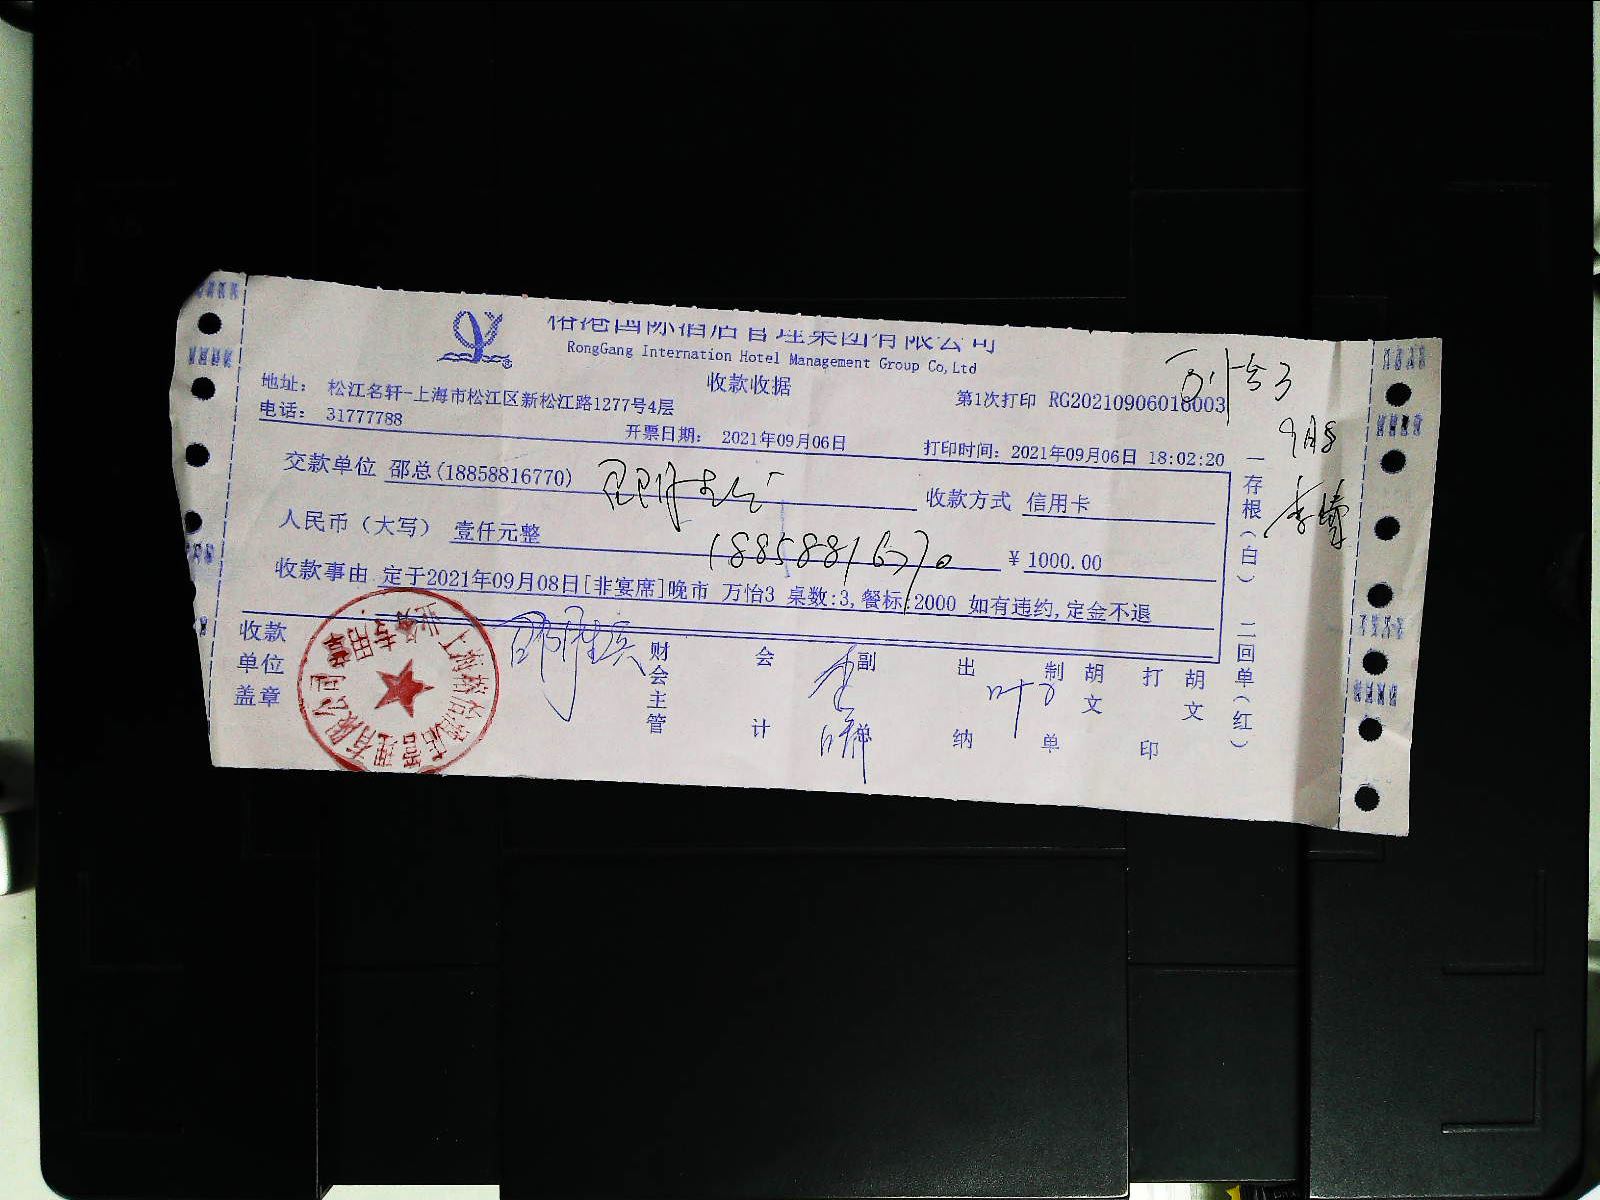 裕港国际酒店管理集团有限公司
RongGang Internation Hotel Management Group Co,Ltd
收款收据
地址： 松江名轩-上海市松江区新松江路1277号4层
第1次打印 RG20210906018003
电话： 31777788
开票日期： 2021年09月06日
打印时间：2021年09月06日 18:02:20
9月8
交款单位 邵总(18858816770)
收款方式 信用卡
人民币（大写） 壹仟元整
18858816770
￥1000.00
收款事由 定于2021年09月08日[非宴席]晚市 万怡3 桌数:3,餐标:2000 如有违约,定金不退
收款单位盖章
财会主管
会计
副总
出纳
叶
制单
胡文
打印
胡文
一存根（白） 二回单（红）
业务专用章